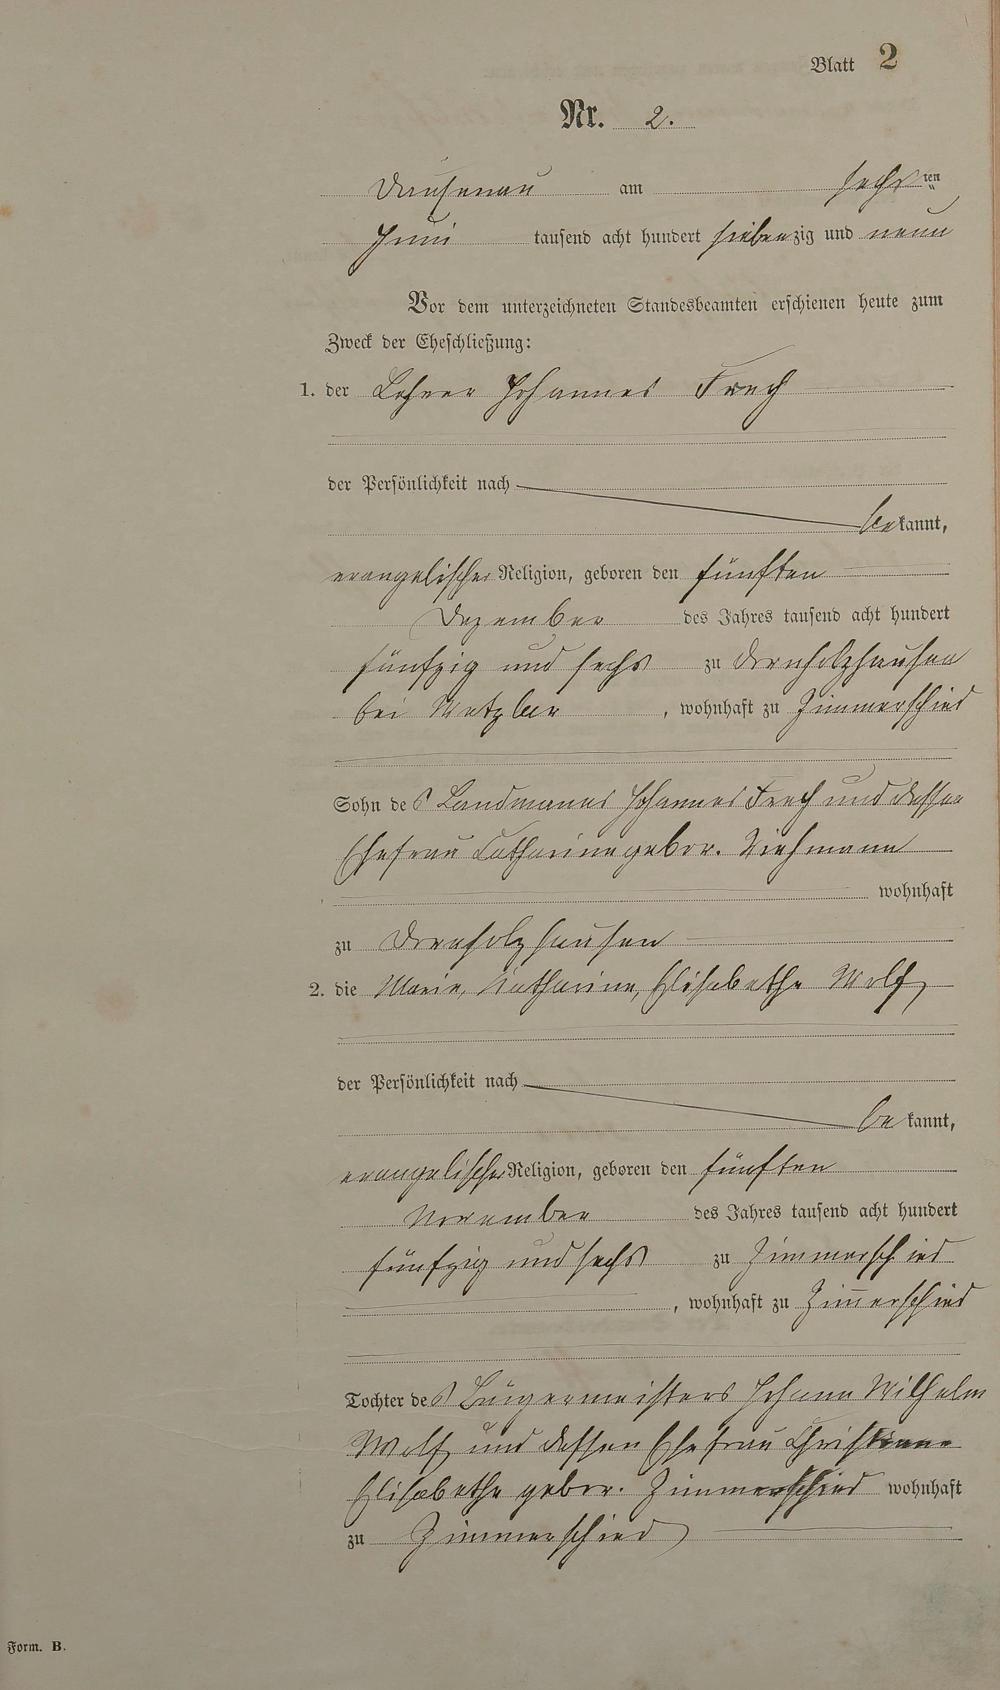 Blatt 2
Nr. 2.
Dausenau am sechsten
Juni tausend acht hundert siebenzig und neun
Vor dem unterzeichneten Standesbeamten erschienen heute zum
Zweck der Eheschließung:
1. der Lehrer Johannes Frech
der Persönlichkeit nach
bekannt,
evangelischer Religion, geboren den fünften
Dezember des Jahres tausend acht hundert
fünfzig und sechs zu Dornholzhausen
bei Wetzlar, wohnhaft zu Zimmerschied
Sohn des Landmanns Johannes Frech und dessen
Ehefrau Catharina gebor. Viehmann
wohnhaft
zu Dornholzhausen
2. die Marie, Katharine, Elisabethe Wolf,
der Persönlichkeit nach
bekannt,
evangelischer Religion, geboren den fünften
November des Jahres tausend acht hundert
fünfzig und sechs zu Zimmerschied
, wohnhaft zu Zimmerschied
Tochter des Bürgermeisters Johann Wilhelm
Wolf und dessen Ehefrau Christiane
Elisabethe gebor. Zimmerschied wohnhaft
zu Zimmerschied
Form. B.